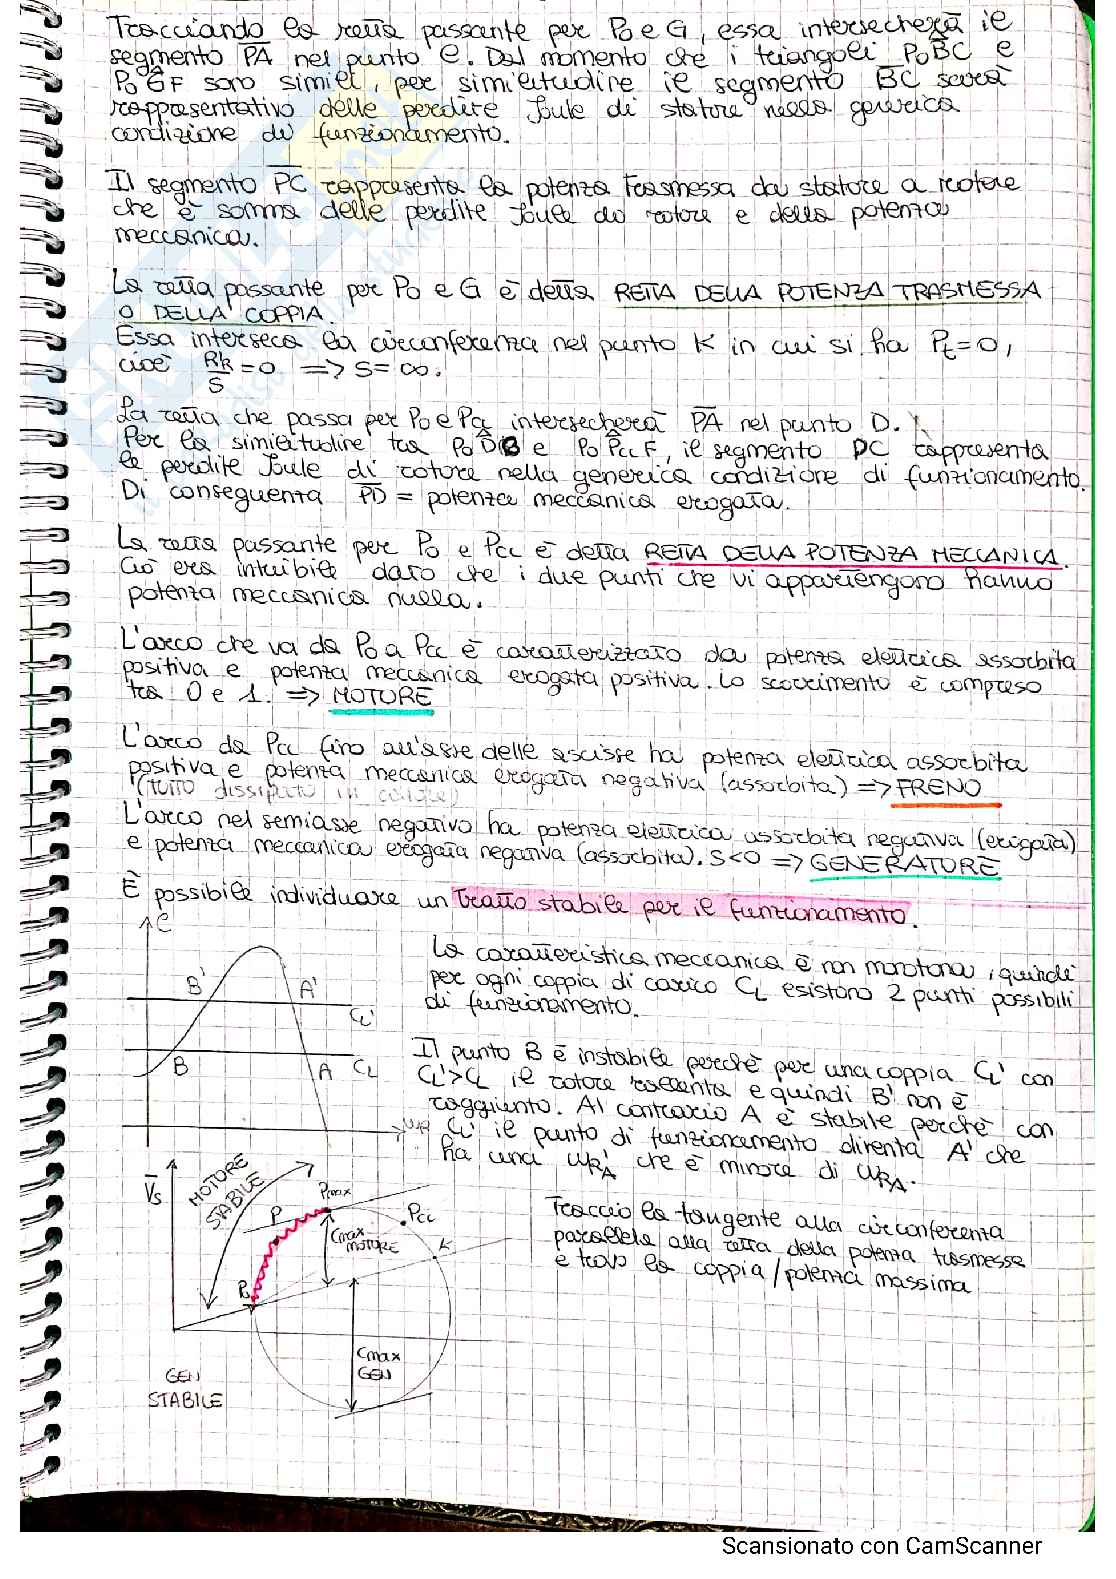 Tracciando la retta passante per P₀ e G, essa intersecherà il
segmento PA nel punto C. Dal momento che i triangoli P₀B̂C e
P₀ĜF sono simili, per similitudine il segmento BC sarà
rappresentativo delle perdite Joule di statore nella generica
condizione di funzionamento.
Il segmento PC rappresenta la potenza trasmessa da statore a rotore
che è somma delle perdite Joule di rotore e della potenza
meccanica.
La retta passante per P₀ e G è detta RETTA DELLA POTENZA TRASMESSA
O DELLA COPPIA.
Essa interseca la circonferenza nel punto K in cui si ha Pt=0,
cioè Rk/S=0 => S=∞.
La retta che passa per P₀ e Pcc intersecherà PA nel punto D.
Per la similitudine tra P₀D̂B e P₀P̂ccF, il segmento DC rappresenta
le perdite Joule di rotore nella generica condizione di funzionamento.
Di conseguenza PD = potenza meccanica erogata.
La retta passante per P₀ e Pcc è detta RETTA DELLA POTENZA MECCANICA.
Ciò era intuibile dato che i due punti che vi appartengono hanno
potenza meccanica nulla.
L'arco che va da P₀ a Pcc è caratterizzato da potenza elettrica assorbita
positiva e potenza meccanica erogata positiva. Lo scorrimento è compreso
tra 0 e 1. => MOTORE
L'arco da Pcc fino all'asse delle ascisse ha potenza elettrica assorbita
positiva e potenza meccanica erogata negativa (assorbita) => FRENO
(tutto dissipato in calore)
L'arco nel semiasse negativo ha potenza elettrica assorbita negativa (erogata)
e potenza meccanica erogata negativa (assorbita). S<0 => GENERATORE
È possibile individuare un tratto stabile per il funzionamento.
C
B'
A'
CL'
B
A
CL
ωR
La caratteristica meccanica è non monotona, quindi
per ogni coppia di carico CL esistono 2 punti possibili
di funzionamento.
Il punto B è instabile perchè per una coppia CL' con
CL'>CL il rotore rallenta e quindi B' non è
raggiunto. Al contrario A è stabile perchè con
CL' il punto di funzionamento diventa A' che
ha una ωRA' che è minore di ωRA.
V̄s
MOTORE
STABILE
Pmax
P
Pcc
Cmax
MOTORE
K
P₀
Cmax
GEN
GEN
STABILE
Traccio la tangente alla circonferenza
parallela alla retta della potenza trasmessa
e trovo la coppia/potenza massima
Scansionato con CamScanner